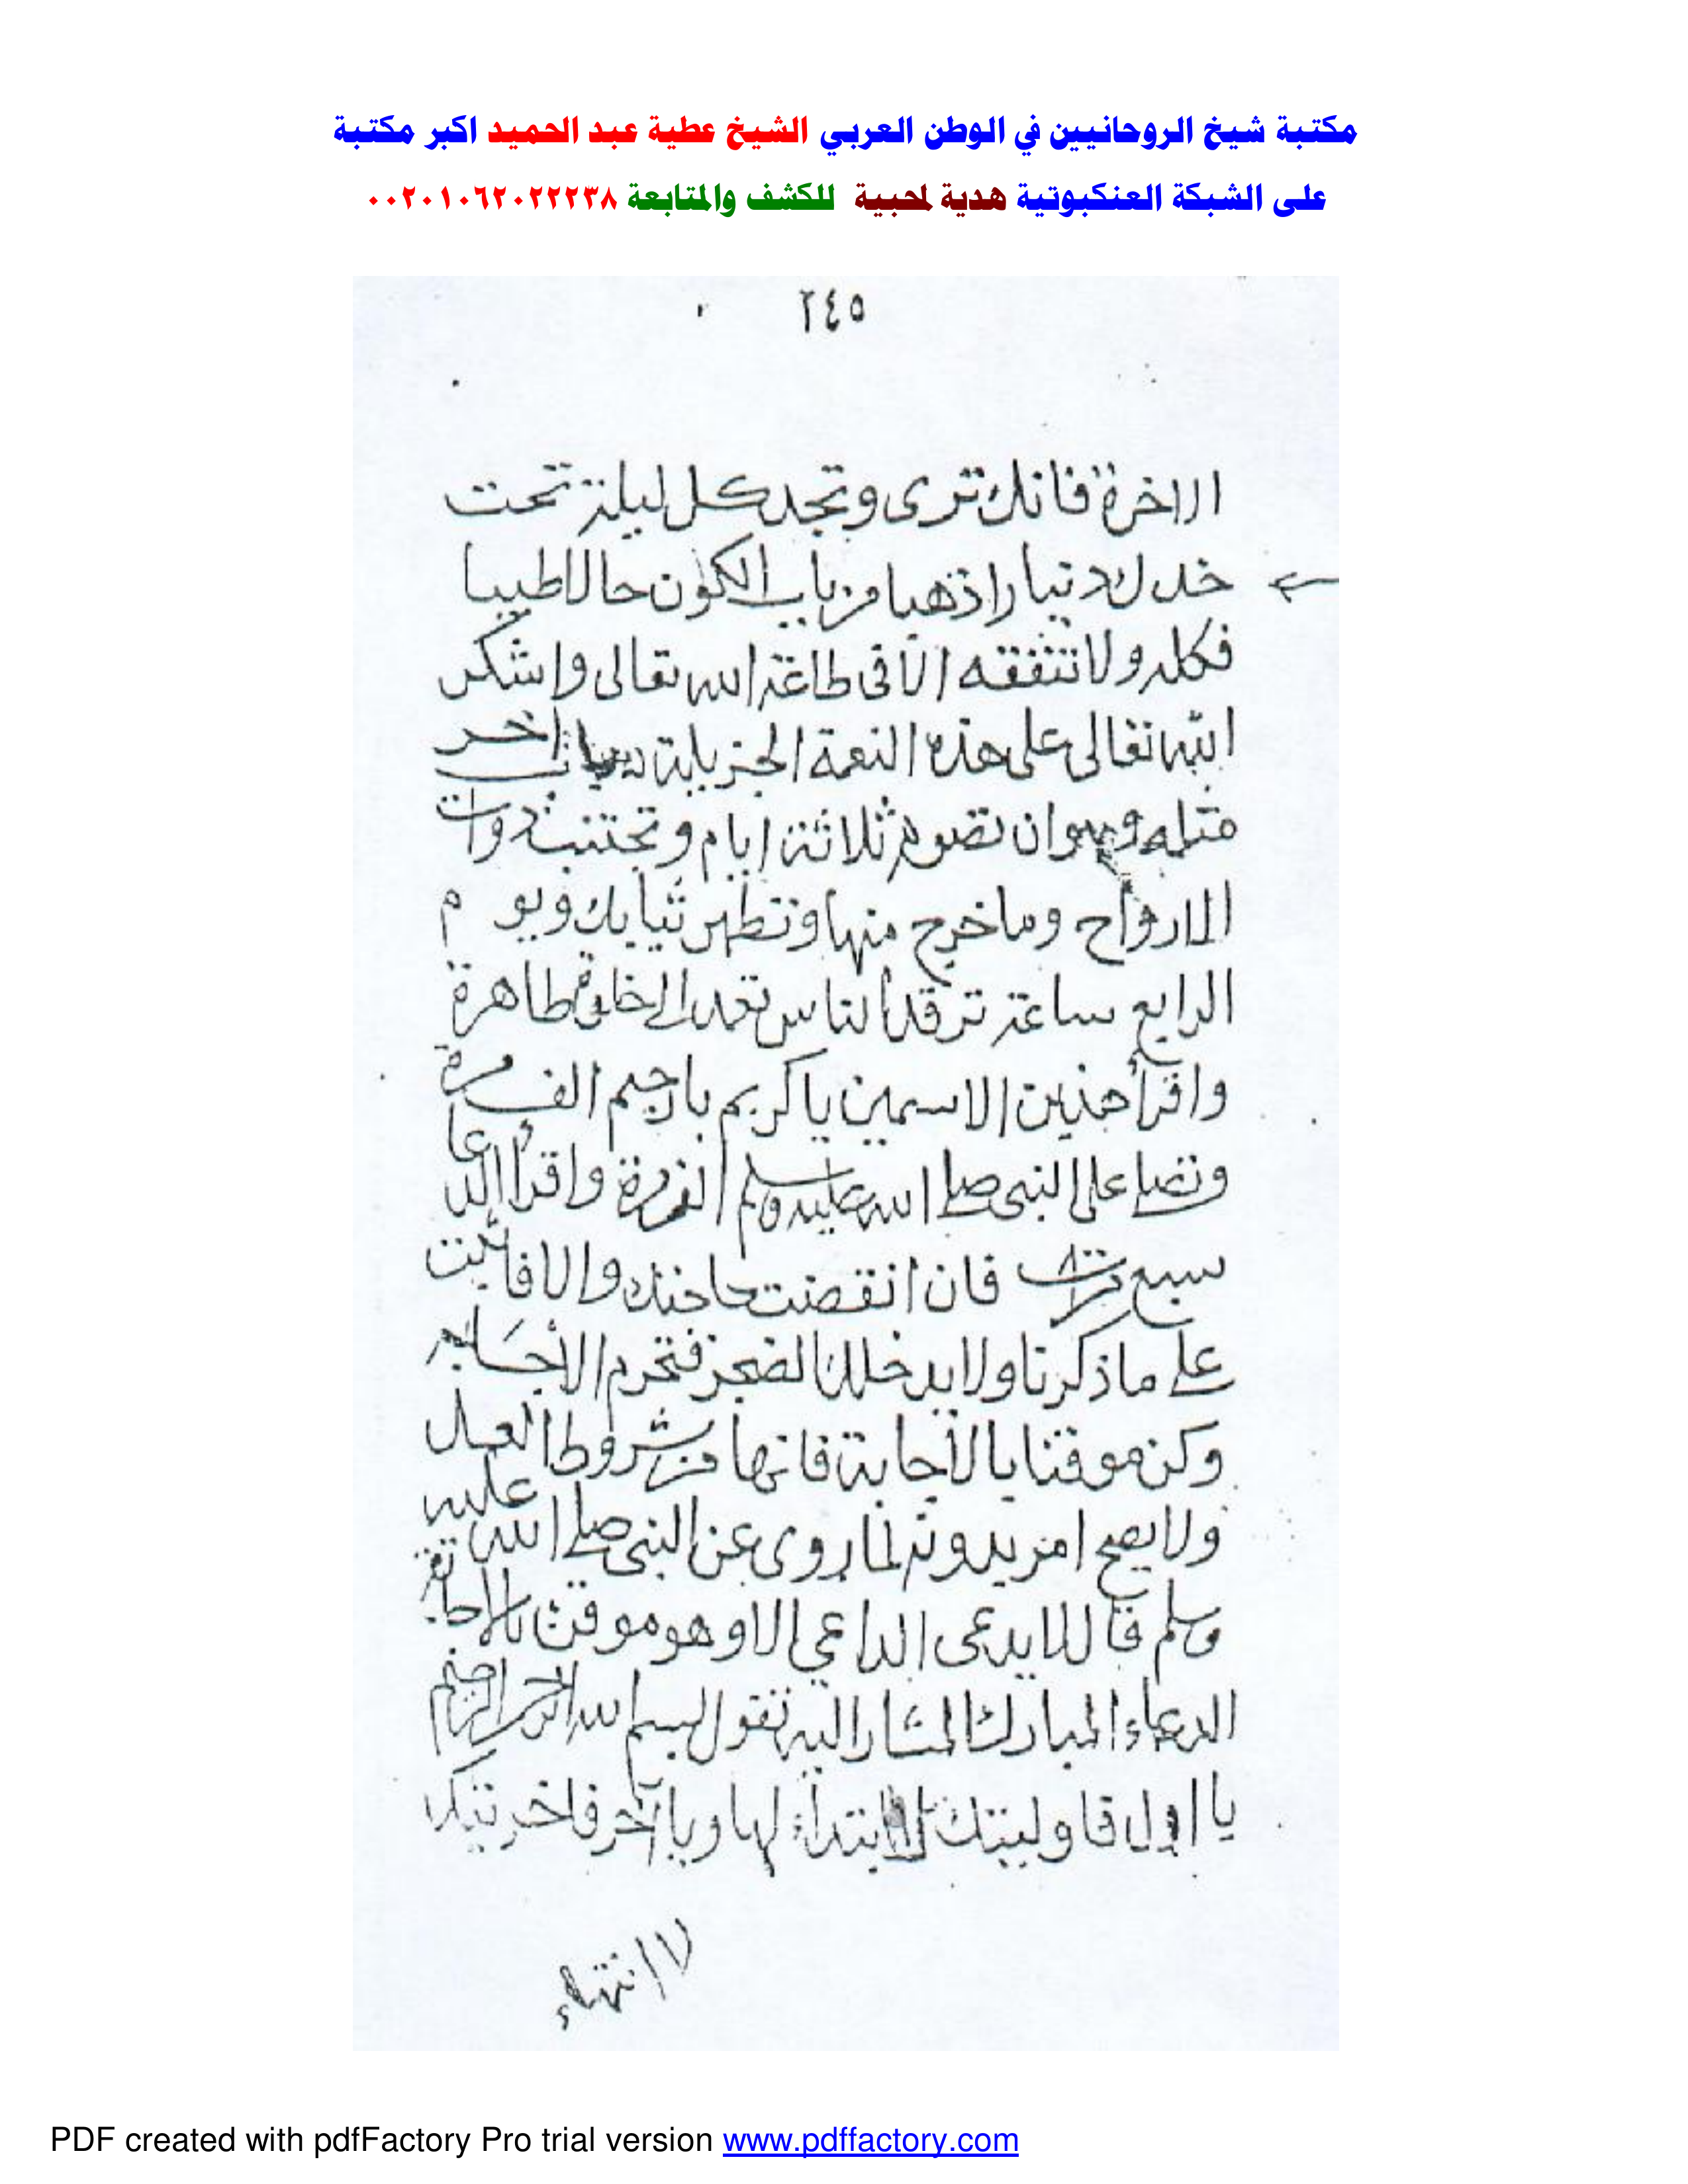 مكتبة شيخ الروحانيين في الوطن العربي الشيخ عطية عبد الحميد اكبر مكتبة
على الشبكة العنكبوتية هدية لمحبية للكشف والمتابعة ٠٠٢٠١٠٦٢٠٢٢٢٣٨
٢٤٥
الاخرة فانك ترى وتجد كل ليلة تحت
خدك دنيارا ذهبا من باب الكون حالا طيبا
فكله ولا تنفقه الا في طاعة الله تعالى واشكر
الله تعالى على هذه النعمة الجزيلة باب اخر
مثله وهو ان تصوم ثلاثة ايام وتجتنب ذوات
الارواح وما خرج منها وتطهر ثيابك ويوم
الرابع ساعة ترقد الناس تعمد الى خلوة طاهرة
واقرأ هذين الاسمين يا كريم يا رحيم الف مرة
وتصلي على النبي صلى الله عليه وسلم الف مرة واقرأ الدعا
سبع مرات فان انقضت حاجتك والا فاثبت
على ما ذكرنا ولا يدخلك الضجر فتحرم الاجابه
وكن موقنا بالأجابة فانها من شروط العمل
ولا يصح امر بدونه لما روى عن النبي صلى الله عليه
وسلم قال لا يدعى الداعي الا وهو موقن بالاجابة
الدعاء المبارك المشار اليه تقول بسم الله الرحمن الرحيم
يا اول فاوليتك لا ابتداء لها ويا آخر فاخريتك
لا انتهاء
PDF created with pdfFactory Pro trial version www.pdffactory.com